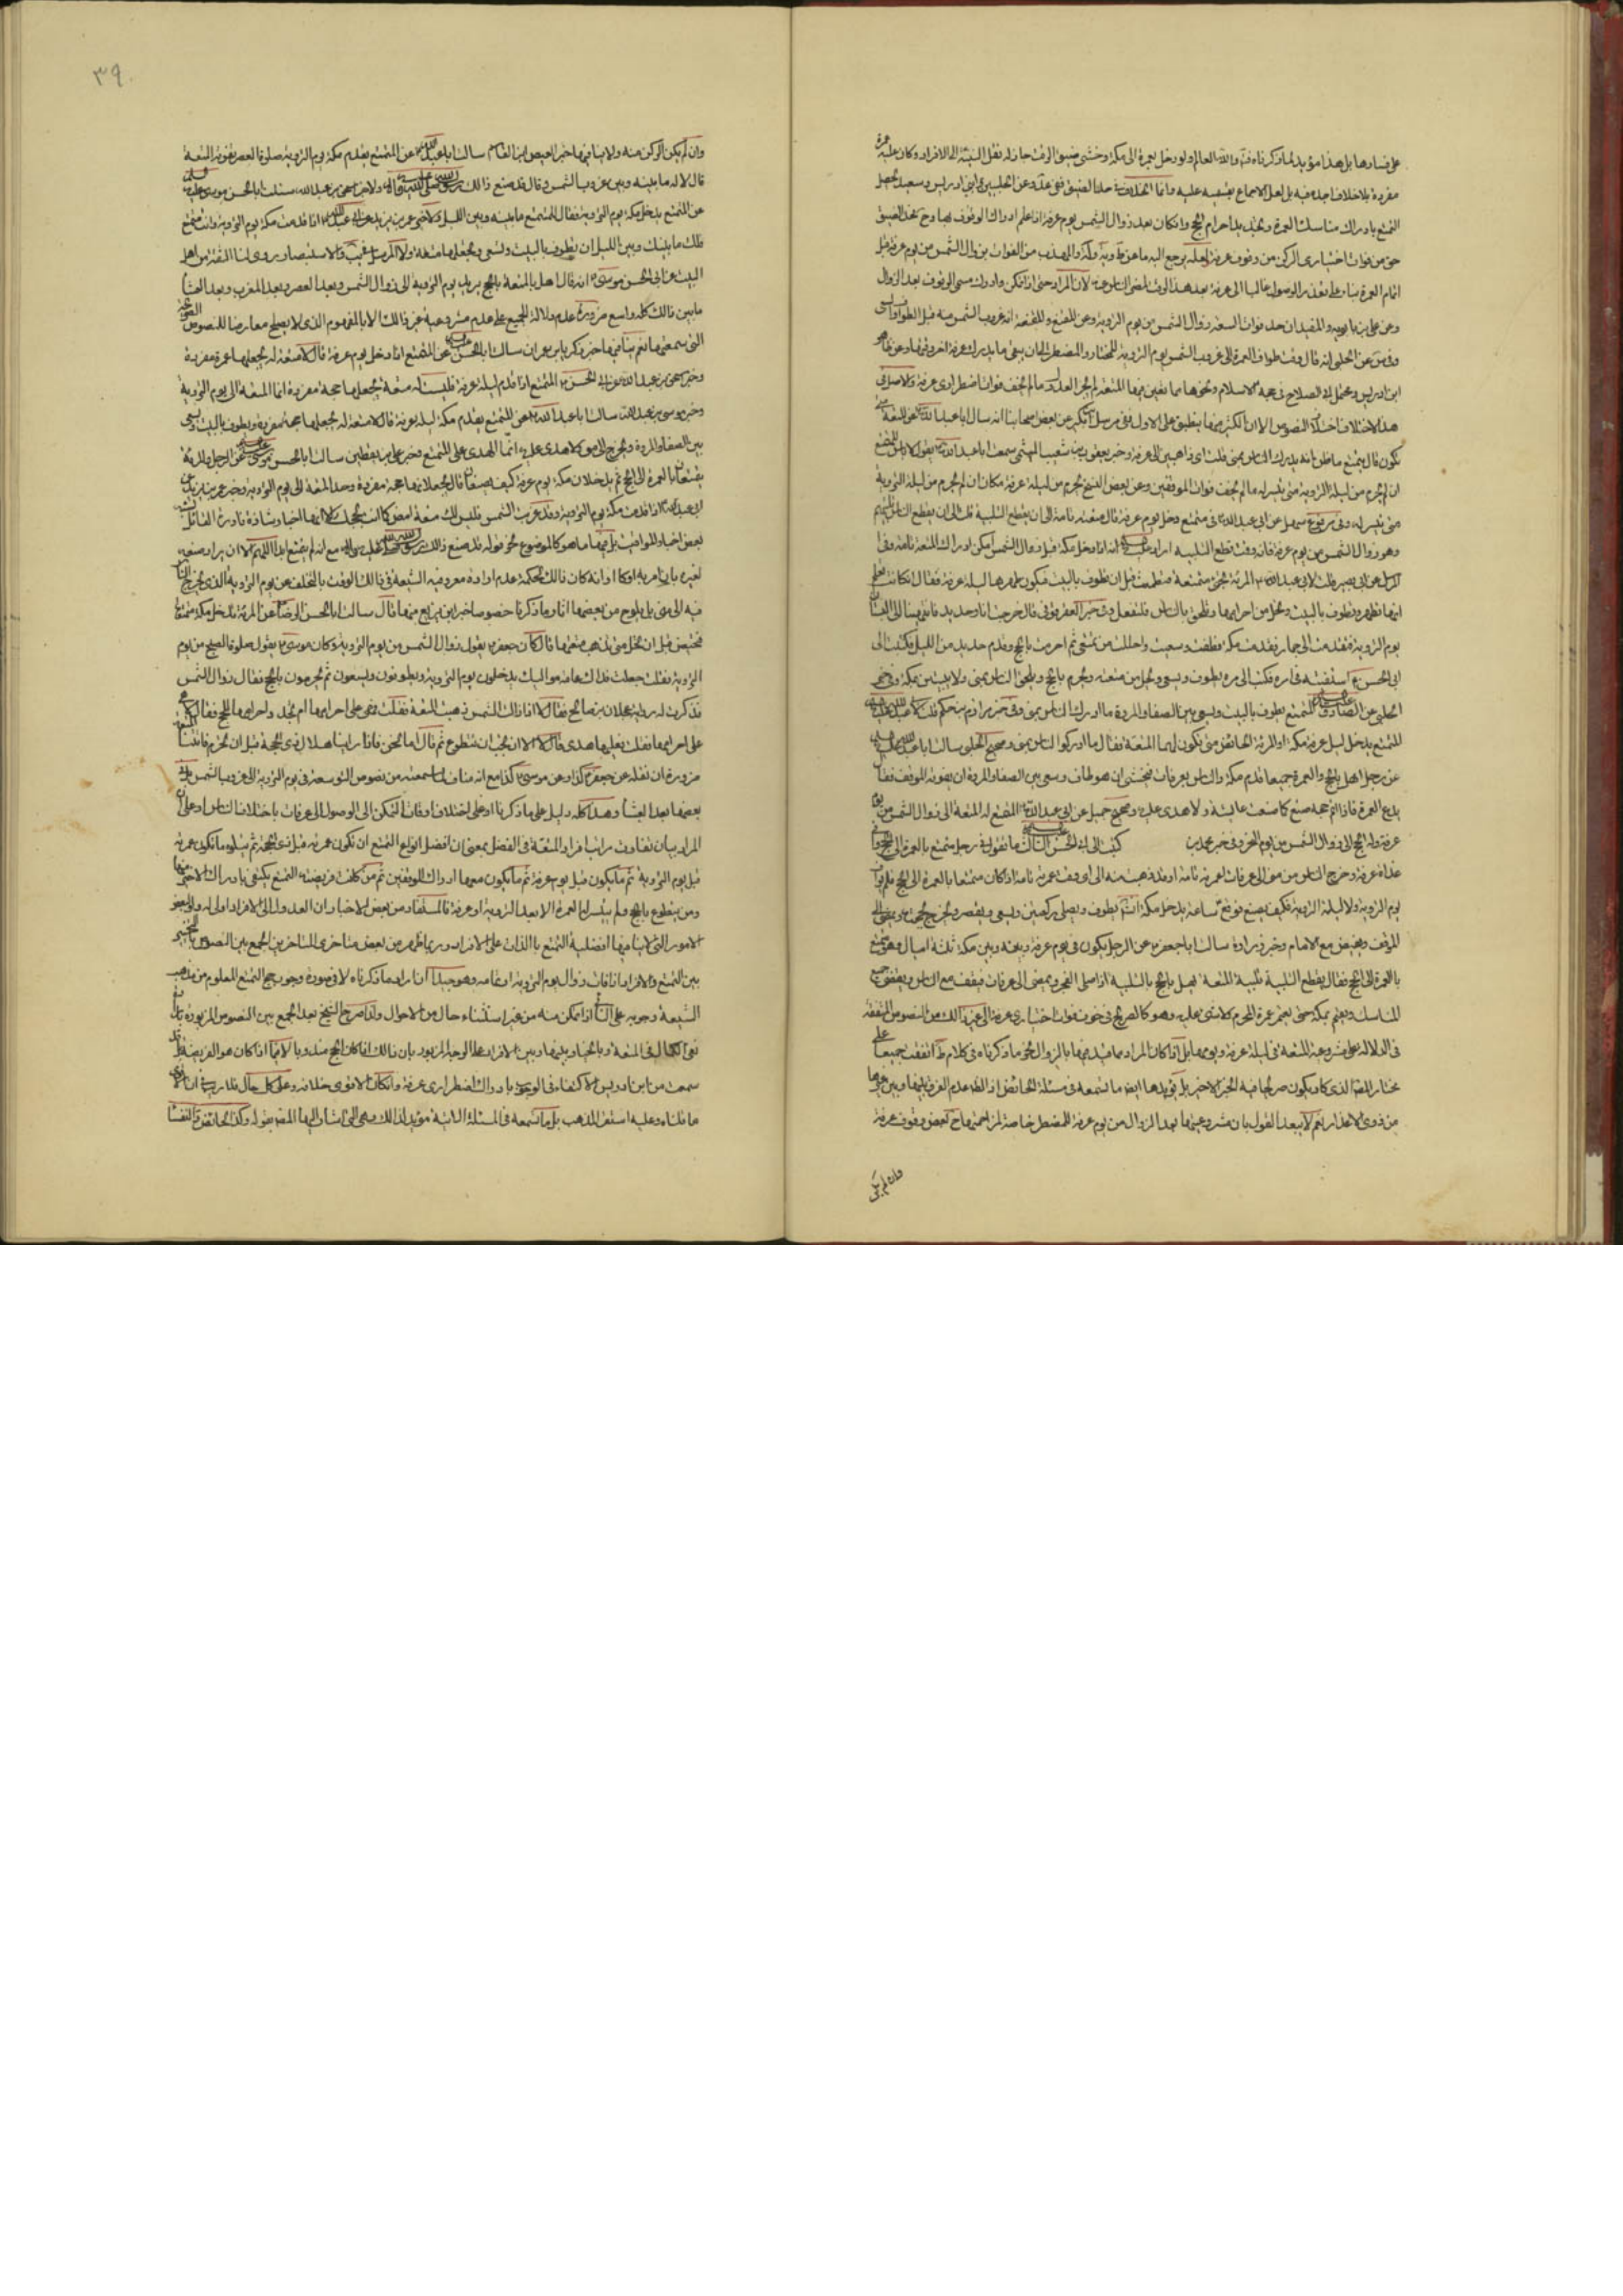 على فسادها بل هذا مؤيد لما ذكرناه فيه والله العالم ولو دخل بعمرة الى مكة وخشى ضيق الوقت جاز له نقل النية الى الافراد وكان عليه عمرة
مفردة بلا خلاف اجده فيه بل لعل الاجماع بقسميه عليه وانما الخلاف في حد الضيق ففي عد وعن الحلبيين وابني ادريس وسعيد يحصل
التمتع بادراك مناسك العمرة وتجديد احرام الحج وان كان بعد زوال الشمس يوم عرفة اذا علم ادراك الوقوف بها وح فحد الضيق
خوف فوات اختيارى الركن من وقوف عرفة ولعله يرجع اليه ما عن ط وية والمهذب من الفوات بزوال الشمس من يوم عرفة قبل
اتمام العمرة بناء على تعذر الوصول غالبا الى عرفة بعد هذا الوقت لمضى الناس عنه لا ان المراد حتى اذا تمكن وادرك مسمى الوقوف بعد الزوال
وعن على بن بابويه والمفيد ان حد فوات السعة زوال الشمس من يوم التروية وعن المقنع والمقنعة انه غروب الشمس منه قبل الطواف والسعى
وعن الحلبي انه قال وقت طواف العمرة الى غروب الشمس يوم التروية للمختار وللمضطر الى ان يبقى ما يدرك عرفة في اخر وقتها وعن ظاهر
ابن ادريس ومحتمل ابي الصلاح في حجة الاسلام ونحوها مما تعين فيها المتعة لم يجز العدول ما لم يخف فوات اضطرارى عرفة والاصل في
هذا الاختلاف اختلاف النصوص الا ان الكثير منها ينطبق على الاول ففي مرسل ابن بكير عن بعض اصحابنا انه سال ابا عبد الله عن المتعة متى
تكون قال يتمتع ما ظن انه يدرك الناس بمنى وخبر يعقوب بن شعيب الميثمي سمعت ابا عبد الله يقول لا باس للمتمتع
ان لم يحرم من ليلة التروية متى تيسر له ما لم يخف فوات الموقفين وعن بعض النسخ يحرم من ليلة عرفة مكان ان لم يحرم من ليلة التروية
متى تيسر له وفي مرفوع سهل عن ابي عبد الله في متمتع دخل يوم عرفة قال متعته تامة الى ان يقطع التلبية الناس تلبيتهم
وهو زوال الشمس من يوم عرفة فانه وقت قطع التلبية انه اذا دخل مكة قبل زوال الشمس امكن ادراك المتعة تامة وفي
عن ابي بصير قلت لابي عبد الله المرئة تجئ متمتعة فتطمث قبل ان تطوف بالبيت فيكون طهرها ليلة عرفة فقال ان كانت تعلم
انها تطهر وتطوف بالبيت وتحل من احرامها وتلحق بالناس فلتفعل وفي خبر العقرقوفي قال خرجت انا وحديد فانتهينا الى البستان
يوم التروية فتقدمت الى حمار فقدمت مكة فطفت وسعيت واحللت من تمتعي ثم احرمت بالحج وقدم حديد من الليل فكتبت الى
ابي الحسن استفتيه في امره فكتب الى مره يطوف ويسعى ويحل من متعته ويحرم بالحج ويلحق الناس بمنى ولا يبيتن بمكة وفي خبر
الحلبي عن الصادق المتمتع يطوف بالبيت ويسعى بين الصفا والمروة ما ادرك الناس بمنى وفي خبر مرازم بن حكيم قلت لابي عبد الله
المتمتع يدخل ليلة عرفة مكة او المرئة الحائض متى تكون لهما المتعة فقال ما ادركوا الناس بمنى وصحيح الحلبي سالت ابا عبد الله
عن رجل اهل بالحج والعمرة جميعا قدم مكة والناس بعرفات فخشى ان هو طاف وسعى بين الصفا والمروة ان يفوته الموقف فقال
يدع العمرة فاذا اتم حجه صنع كما صنعت عايشة ولا هدى عليه وصحيح جميل عن ابي عبد الله المتمتع له المتعة الى زوال الشمس من يوم
عرفة وله الحج الى زوال الشمس من يوم النحر وفي خبر محمد بن كتبت الى ابي الحسن الثالث ما تقول في رجل متمتع بالعمرة الى الحج وافى
غداة عرفة وخرج الناس من منى الى عرفات اعمرته تامة او قد ذهبت منه الى اى وقت عمرته تامة اذا كان متمتعا بالعمرة الى الحج فلم يواف
يوم التروية ولا ليلة التروية فكيف يصنع فوقع ساعة يدخل مكة انشاء الله يطوف ويصلى ركعتين ويسعى ويقصر ويخرج بحجته ويمضى الى
الموقف ويفيض مع الامام وخبر زرارة سالت ابا جعفر عن الرجل يكون في يوم عرفة وبينه وبين مكة ثلثة اميال وهو متمتع
بالعمرة الى الحج فقال يقطع التلبية تلبية المتعة يهل بالحج بالتلبية اذا صلى الفجر ويمضى الى عرفات فيقف مع الناس ويقضى جميع
المناسك ويقيم بمكة حتى يعتمر عمرة المحرم ولا شئ عليه وهو كالصريح في خوف فوات اختيارى عرفة الى غير ذلك من النصوص المتفقة
في الدلالة على مشروعية المتعة في ليلة عرفة ويومها بل اذا كان المراد مما قيد منها بالزوال نحو ما ذكرناه في كلام ط اتفقت جميعا على
مختار المصنف الذى كاد يكون صريحا فيه الخبر الاخير بل يؤيدها ايضا ما تسمعه في مسئلة الحائض اذ الظاهر عدم الفرق بينها وبين غيرها
من ذوى الاعذار نعم لا يبعد القول بان مشروعيتها بعد الزوال من يوم عرفة للمضطر خاصة لمزاحمتها ح لبعض وقوف عرفة
وان لم يكن
٣٩
وان لم يكن الركن منه ولا ينافيها خبر العيص ابن القاسم سالت ابا عبد الله عن المتمتع يقدم مكة يوم التروية صلوة العصر تفوته المتعة
قال لا له ما بينه وبين غروب الشمس وقال قد صنع ذالك رسول الله صلى الله عليه وآله ولا خبر اسحق بن عبد الله سئلت ابا الحسن موسى عليه السلم
عن المتمتع يدخل مكة يوم التروية فقال للمتمتع ما بينه وبين الليل ولا خبر عمر بن يزيد عن ابي عبد الله اذا قدمت مكة يوم التروية وانت متمتع
فلك ما بينك وبين الليل ان تطوف بالبيت وتسعى وتجعلها متعة ولا المرسل في يب والاستبصار روى لنا الثقة من اهل
البيت عن ابي الحسن موسى انه قال اهل بالمتعة بالحج يريد يوم التروية الى زوال الشمس وبعد العصر وبعد المغرب وبعد العشاء
ما بين ذالك كله واسع ضرورة عدم دلالة الجميع على عدم مشروعية غير ذالك الا بالمفهوم الذى لا يصلح معارضا للنصوص الصريحة
التي سمعتها نعم ينافيها خبر زكريا بن عمران سالت ابا الحسن عن المتمتع اذا دخل يوم عرفة قال لا متعة له يجعلها عمرة مفردة
وخبر اسحق بن عبد الله عن ابي الحسن المتمتع اذا قدم ليلة عرفة فليست له متعة يجعلها حجة مفردة انما المتعة الى يوم التروية
وخبر موسى بن عبد الله سالت ابا عبد الله عن المتمتع يقدم مكة ليلة عرفة قال لا متعة له يجعلها حجة مفردة ويطوف بالبيت ويسعى
بين الصفا والمروة ويخرج الى منى ولا هدى عليه انما الهدى على المتمتع وخبر على بن يقطين سالت ابا الحسن موسى عن الرجل والمرئة
يتمتعان بالعمرة الى الحج ثم يدخلان مكة يوم عرفة كيف يصنعان قال يجعلانها حجة مفردة وحد المتعة الى يوم التروية وخبر عمر بن يزيد عن
ابي عبد الله اذا قدمت مكة يوم التروية وقد غربت الشمس فليس لك متعة امض كما انت بحجك الا انها اخبار شاذة نادرة القائل تشبه
بعض اخبار المواقيت بل فيها ما هو كالموضوع نحو قوله قد صنع ذلك رسول الله صلى الله عليه وآله مع انه لم يتمتع ابدا اللهم الا ان يراد صنعه
لغيره بان امر به او انه كان ذالك لحكمة عدم ارادة معروفية الشيعة في ذالك الوقت بالتخلف عن يوم التروية الذى يخرج الناس
فيه الى منى بل يلوح من بعضها انار ما ذكرنا خصوصا خبر ابن بزيع منها قال سالت ابا الحسن الرضا عن المرئة تدخل مكة متمتعة
فتحيض قبل ان تحل متى تذهب متعتها قال كان جعفر يقول زوال الشمس من يوم التروية وكان موسى يقول صلوة الصبح من يوم
التروية فقلت جعلت فداك عامة مواليك يدخلون يوم التروية ويطوفون ويسعون ثم يحرمون بالحج فقال زوال الشمس
فذكرت له رواية عجلان بن صالح فقال لا اذا زالت الشمس ذهبت المتعة فقلت فهى على احرامها ام تجدد احرامها للحج فقال لا هى
على احرامها فقلت فعليها هدى قال لا الا ان تحب ان تتطوع ثم قال اما نحن فاذا راينا هلال ذى الحجة قبل ان نحرم فاتتنا المتعة
ضرورة ان نقله عن جعفر كذا وعن موسى كذا مع انه مناف لما سمعته من نصوص التوسعة في يوم التروية الى غروب الشمس وفي
بعضها بعد العشاء وهذا كله دليل على ما ذكرنا او على اختلاف اوقات التمكن الى الوصول الى عرفات باختلاف الناس او على ان
المراد بيان تفاوت مراتب افراد المتعة في الفضل بمعنى ان افضل انواع التمتع ان تكون عمرته قبل ذى الحجة ثم يتلوه ما تكون عمرته
قبل يوم التروية ثم ما يكون قبل يوم عرفة ثم ما يكون معها ادراك الموقفين ثم من كانت فريضته التمتع يكتفى بادراك الاخير منها
ومن يتطوع بالحج ولم يتيسر له العمرة الا بعد التروية او عرفة فالمستفاد من بعض الاخبار ان العدول الى الافراد اولى له ولو لبعض
الامور التي لا ينافيها افضلية التمتع بالذات على الافراد وربما ظهر من بعض متاخرى المتاخرين الجمع بين النصوص بالتخيير
بين التمتع والافراد اذا فات زوال يوم التروية او تمامه وهو جيد ان اراد ما ذكرناه لا في صورة وجوب حج التمتع المعلوم من مذهب
الشيعة وجوبه على النائى اذا تمكن منه من غير استثناء حال من الاحوال ولذا صرح الشيخ بعد الجمع بين النصوص المزبورة
نفى الكمال في المتعة وبالتخيار بينها وبين الافراد على الوجه المزبور بان ذالك اذا كان الحج مندوبا لا فيما اذا كان هو الفريضة
سمعت من ابن ادريس الاكتفاء في الوجوب بادراك اضطرارى عرفة وان كان الاقوى خلافه وعلى كل حال فلا ريب في ان الاقوى
ما قلناه وعليه استقر المذهب بل ما تسمعه في المسئلة الاتية مؤيد لذالك وهى التي اشار اليها المصنف بقوله وكذا الحائض والنفساء